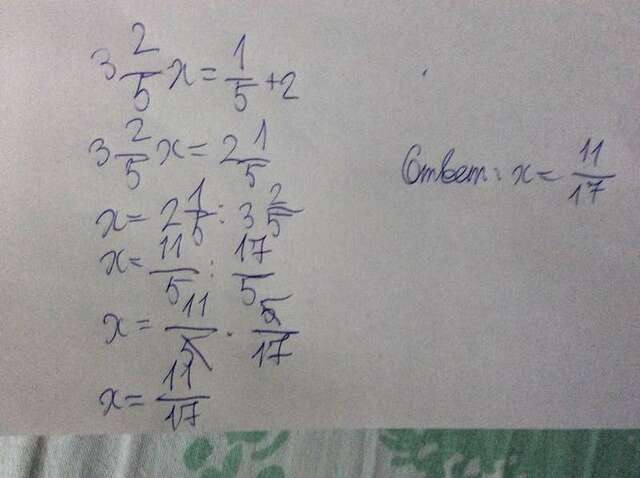 3 2/5 x = 1/5 + 2
3 2/5 x = 2 1/5
x = 2 1/5 : 3 2/5
x = 11/5 : 17/5
x = 11/5 · 5/17
x = 11/17
Ответ: x = 11/17